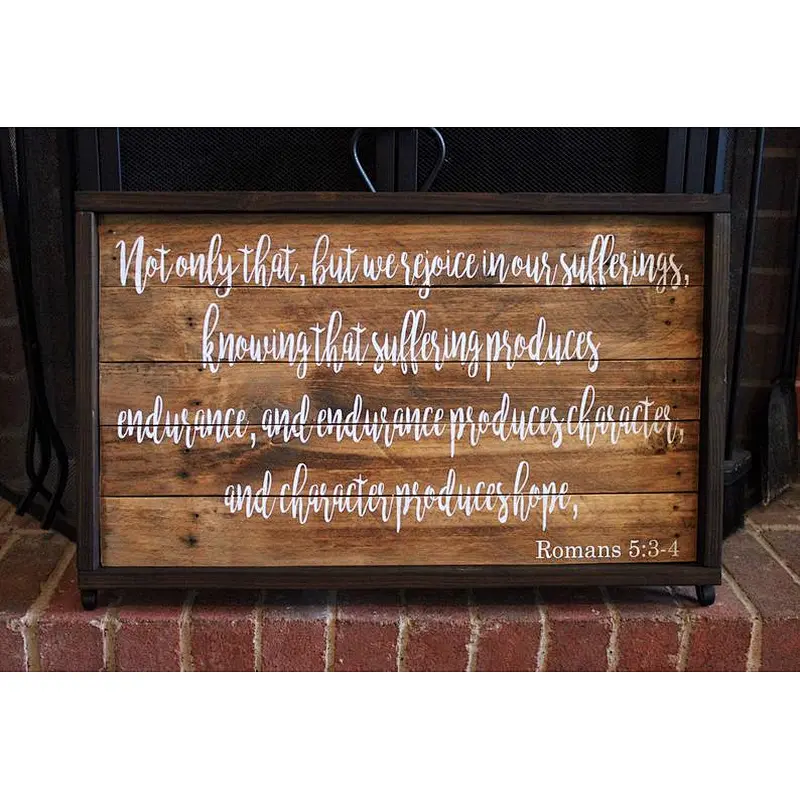 Not only that, but we rejoice in our sufferings,
knowing that suffering produces
endurance, and endurance produces character,
and character produces hope,
Romans 5:3-4